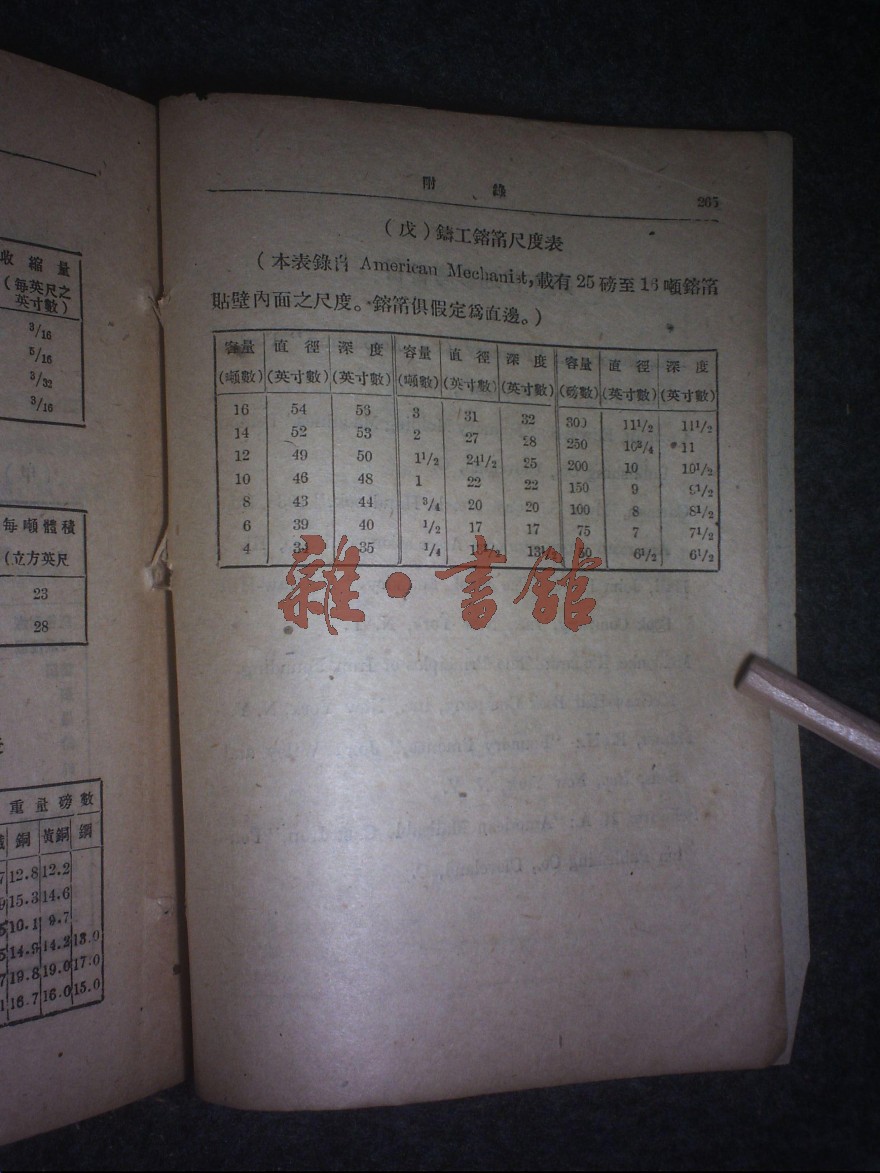 收縮量
(每英尺之
英寸數)
3/16
5/16
3/32
3/16
每噸體積
(立方英尺
23
28
重量磅數
銅 黃銅 鋼
12.8 12.2
15.3 14.6
10.1 9.7
14.9 14.2 13.0
19.8 19.0 17.0
16.7 16.0 15.0
附錄 265
(戊)鑄工鎔筩尺度表
(本表錄自 American Mechanist,載有25磅至16噸鎔筩
貼壁內面之尺度。鎔筩俱假定爲直邊。)
容量 直徑 深度 容量 直徑 深度 容量 直徑 深度
(噸數) (英寸數) (英寸數) (噸數) (英寸數) (英寸數) (磅數) (英寸數) (英寸數)
16 54 53 3 31 32 300 11 1/2 11 1/2
14 52 53 2 27 28 250 10 3/4 11
12 49 50 1 1/2 24 1/2 25 200 10 10 1/2
10 46 48 1 22 22 150 9 9 1/2
8 43 44 3/4 20 20 100 8 8 1/2
6 39 40 1/2 17 17 75 7 7 1/2
4 35 1/4 13 1/2 6 1/2 6 1/2
雜·書館